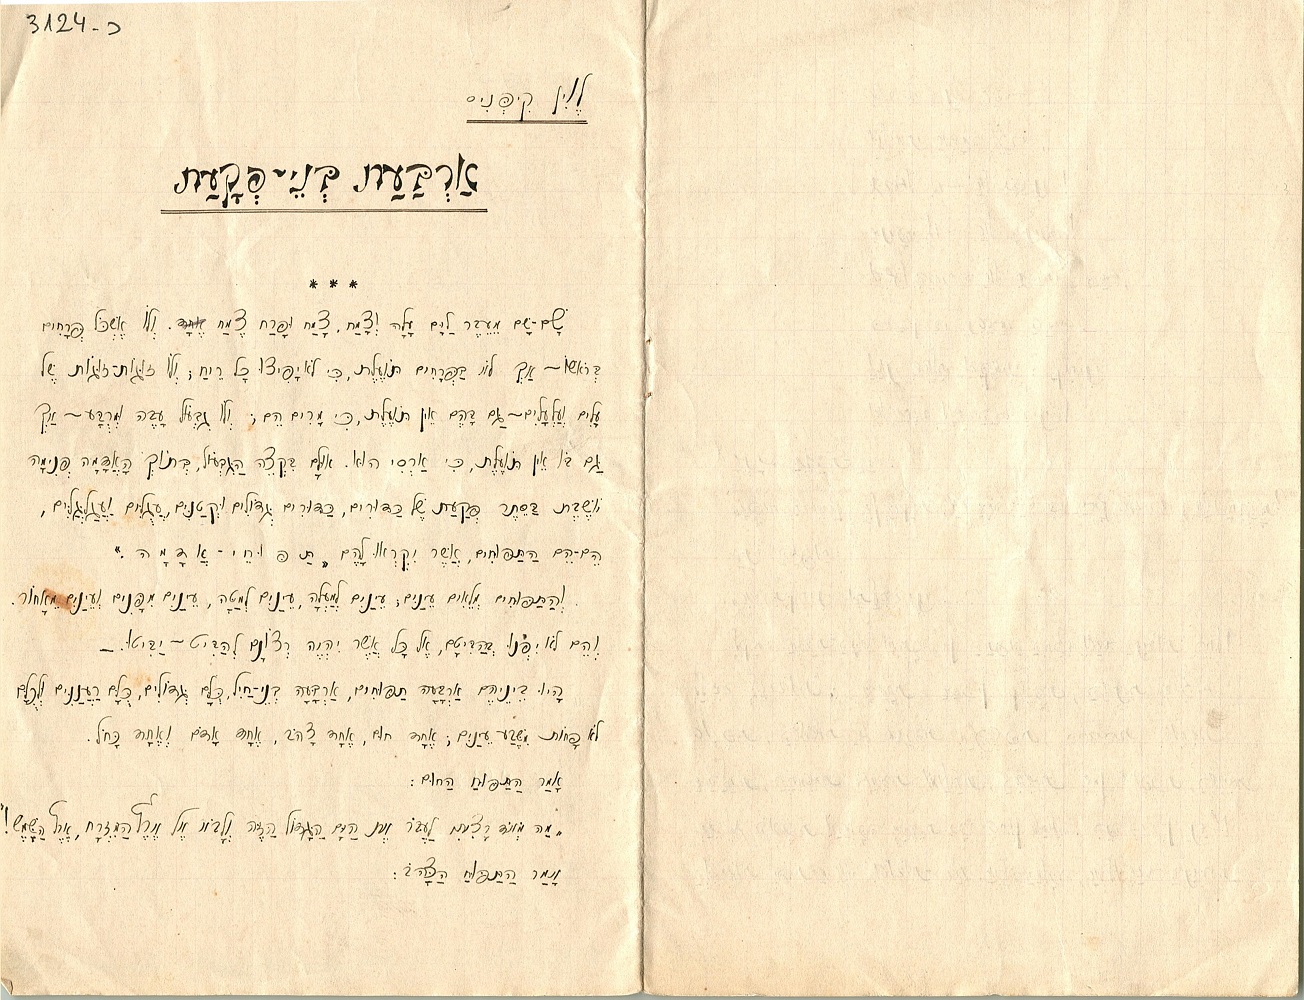 3124-כ
לֶוִין קִיפְּנִיס
אַרְבַּעַת בְּנֵי-פְּקַעַת
* * *
שָׁם-שָׁם מֵעֵבֶר לַיָּם עָלָה וְצָמַח, צָמַח וּפָרַח צֶמַח אֶחָד. וְלוֹ אֶשְׁכֹּל פְּרָחִים
בְּרֹאשׁוֹ – אַךְ לֹא בַּפְּרָחִים תּוֹעֶלֶת, כִּי לֹא יָפִיצוּ כָּל רֵיחַ; וְלוֹ זוּגוֹת-זוּגוֹת שֶׁל
עָלִים וַעֲלְעַלִּים – גַּם בָּהֶם אֵין תּוֹעֶלֶת, כִּי מָרִים הֵם; וְלוֹ גִּבְעוֹל עָבֶה וּמְרֻבָּע – אַךְ
גַּם בּוֹ אֵין תּוֹעֶלֶת, כִּי אַרְסִי הוּא. אוּלָם בִּקְצֵה הַגִּבְעוֹל, בְּתוֹךְ הָאֲדָמָה פְּנִימָה
יוֹשֶׁבֶת בַּסֵּתֶר פְּקַעַת שֶׁל כַּדּוּרִים, כַּדּוּרִים גְּדוֹלִים וּקְטַנִּים, עֲגֻלִּים וַעֲגַלְגַּלִּים,
הֵם-הֵם הַתַּפּוּחִים, אֲשֶׁר יִקְרְאוּ לָהֶם „תַּפּוּחֵי-אֲדָמָה”.
וְהַתַּפּוּחִים מְלֵאִים עֵינַיִם; עֵינַיִם לְמַעְלָה, עֵינַיִם לְמַטָּה, עֵינַיִם מִפָּנִים וְעֵינַיִם מֵאָחוֹר.
וְהֵם לֹא יִפְנוּ בְּהַבִּיטָם, אֶל כָּל אֲשֶׁר יִהְיֶה רְצוֹנָם לְהַבִּיט – יַבִּיטוּ. –
הָיוּ בֵּינֵיהֶם אַרְבָּעָה תַּפּוּחִים, אַרְבָּעָה בְּנֵי-חַיִל, כֻּלָּם גְּדוֹלִים, כֻּלָּם רַעֲנַנִּים וּלְכֻלָּם
לֹא פָּחוֹת מִשֶּׁבַע עֵינַיִם; אֶחָד חוּם, אֶחָד צָהֹב, אֶחָד אָדֹם וְאֶחָד כָּחֹל.
אָמַר הַתַּפּוּחַ הַחוּם:
„מַה מְּאֹד רָצִיתִי לַעֲבֹר אֶת הַיָּם הַגָּדוֹל הַזֶּה וְלָבוֹא אֶל אֶרֶץ הַמִּזְרָח, אֶרֶץ הַשֶּׁמֶשׁ!”
אָמַר הַתַּפּוּחַ הַצָּהֹב: